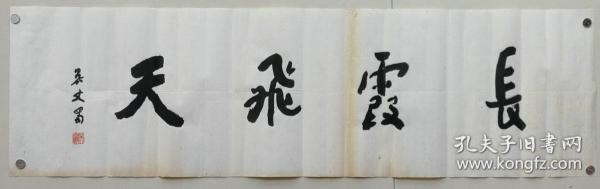 長霞飛天
吴丈蜀
孔夫子旧书网
www.kongfz.com